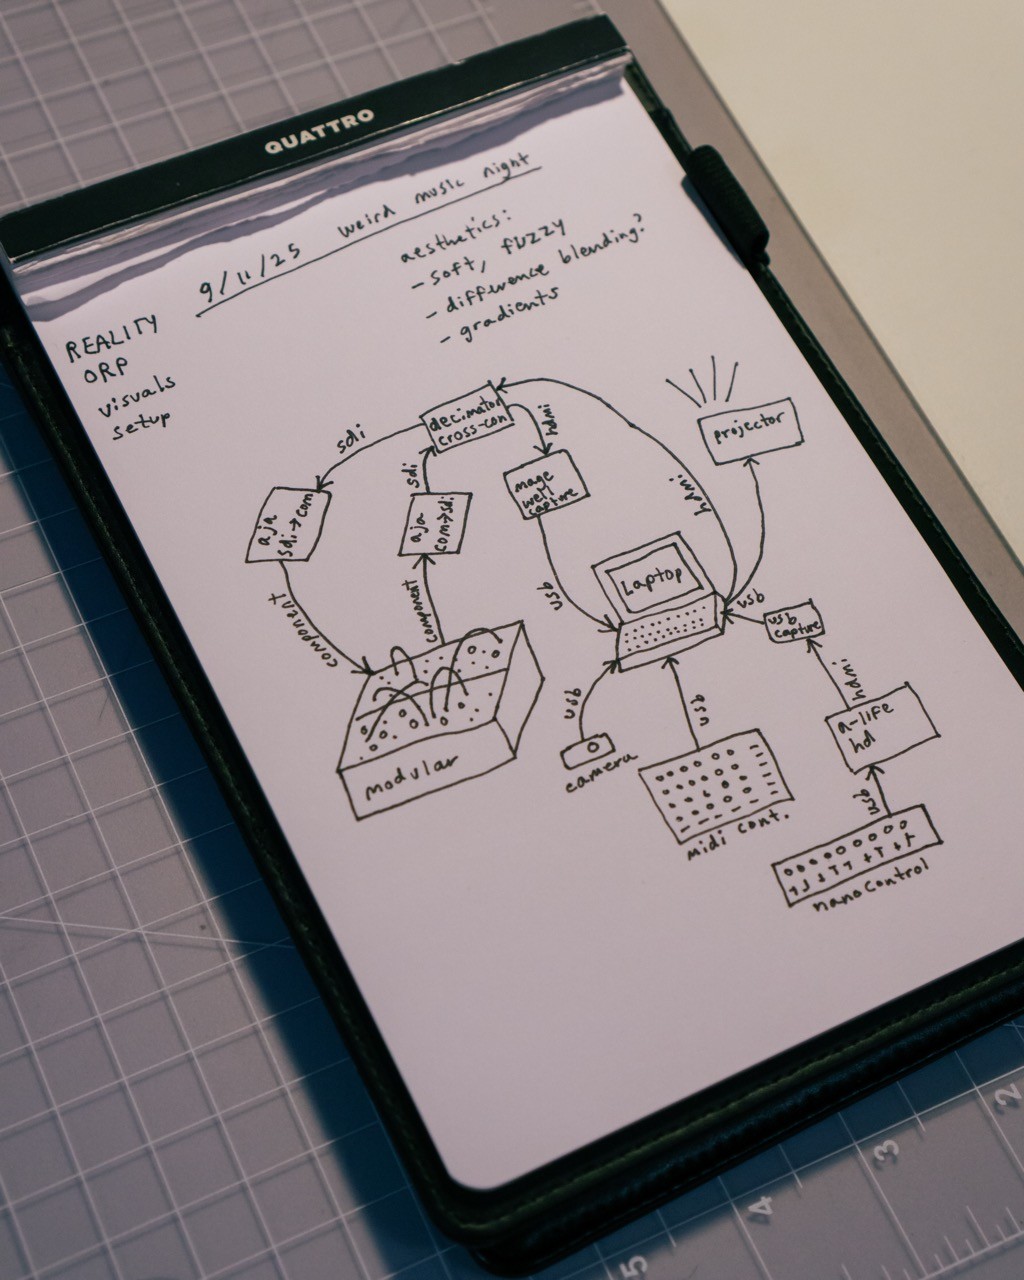 QUATTRO
9/11/25 weird music night
aesthetics:
- soft, fuzzy
- difference blending?
- gradients
REALITY
ORP
visuals
setup
decimator
cross-con
sdi
sdi
hdmi
hdmi
projector
aja
sdi→com
aja
com→sdi
mage
well
capture
component
component
usb
Laptop
usb
usb
capture
modular
usb
camera
usb
midi cont.
hdmi
a-life
hd
usb
nanoControl
2
3
4
5